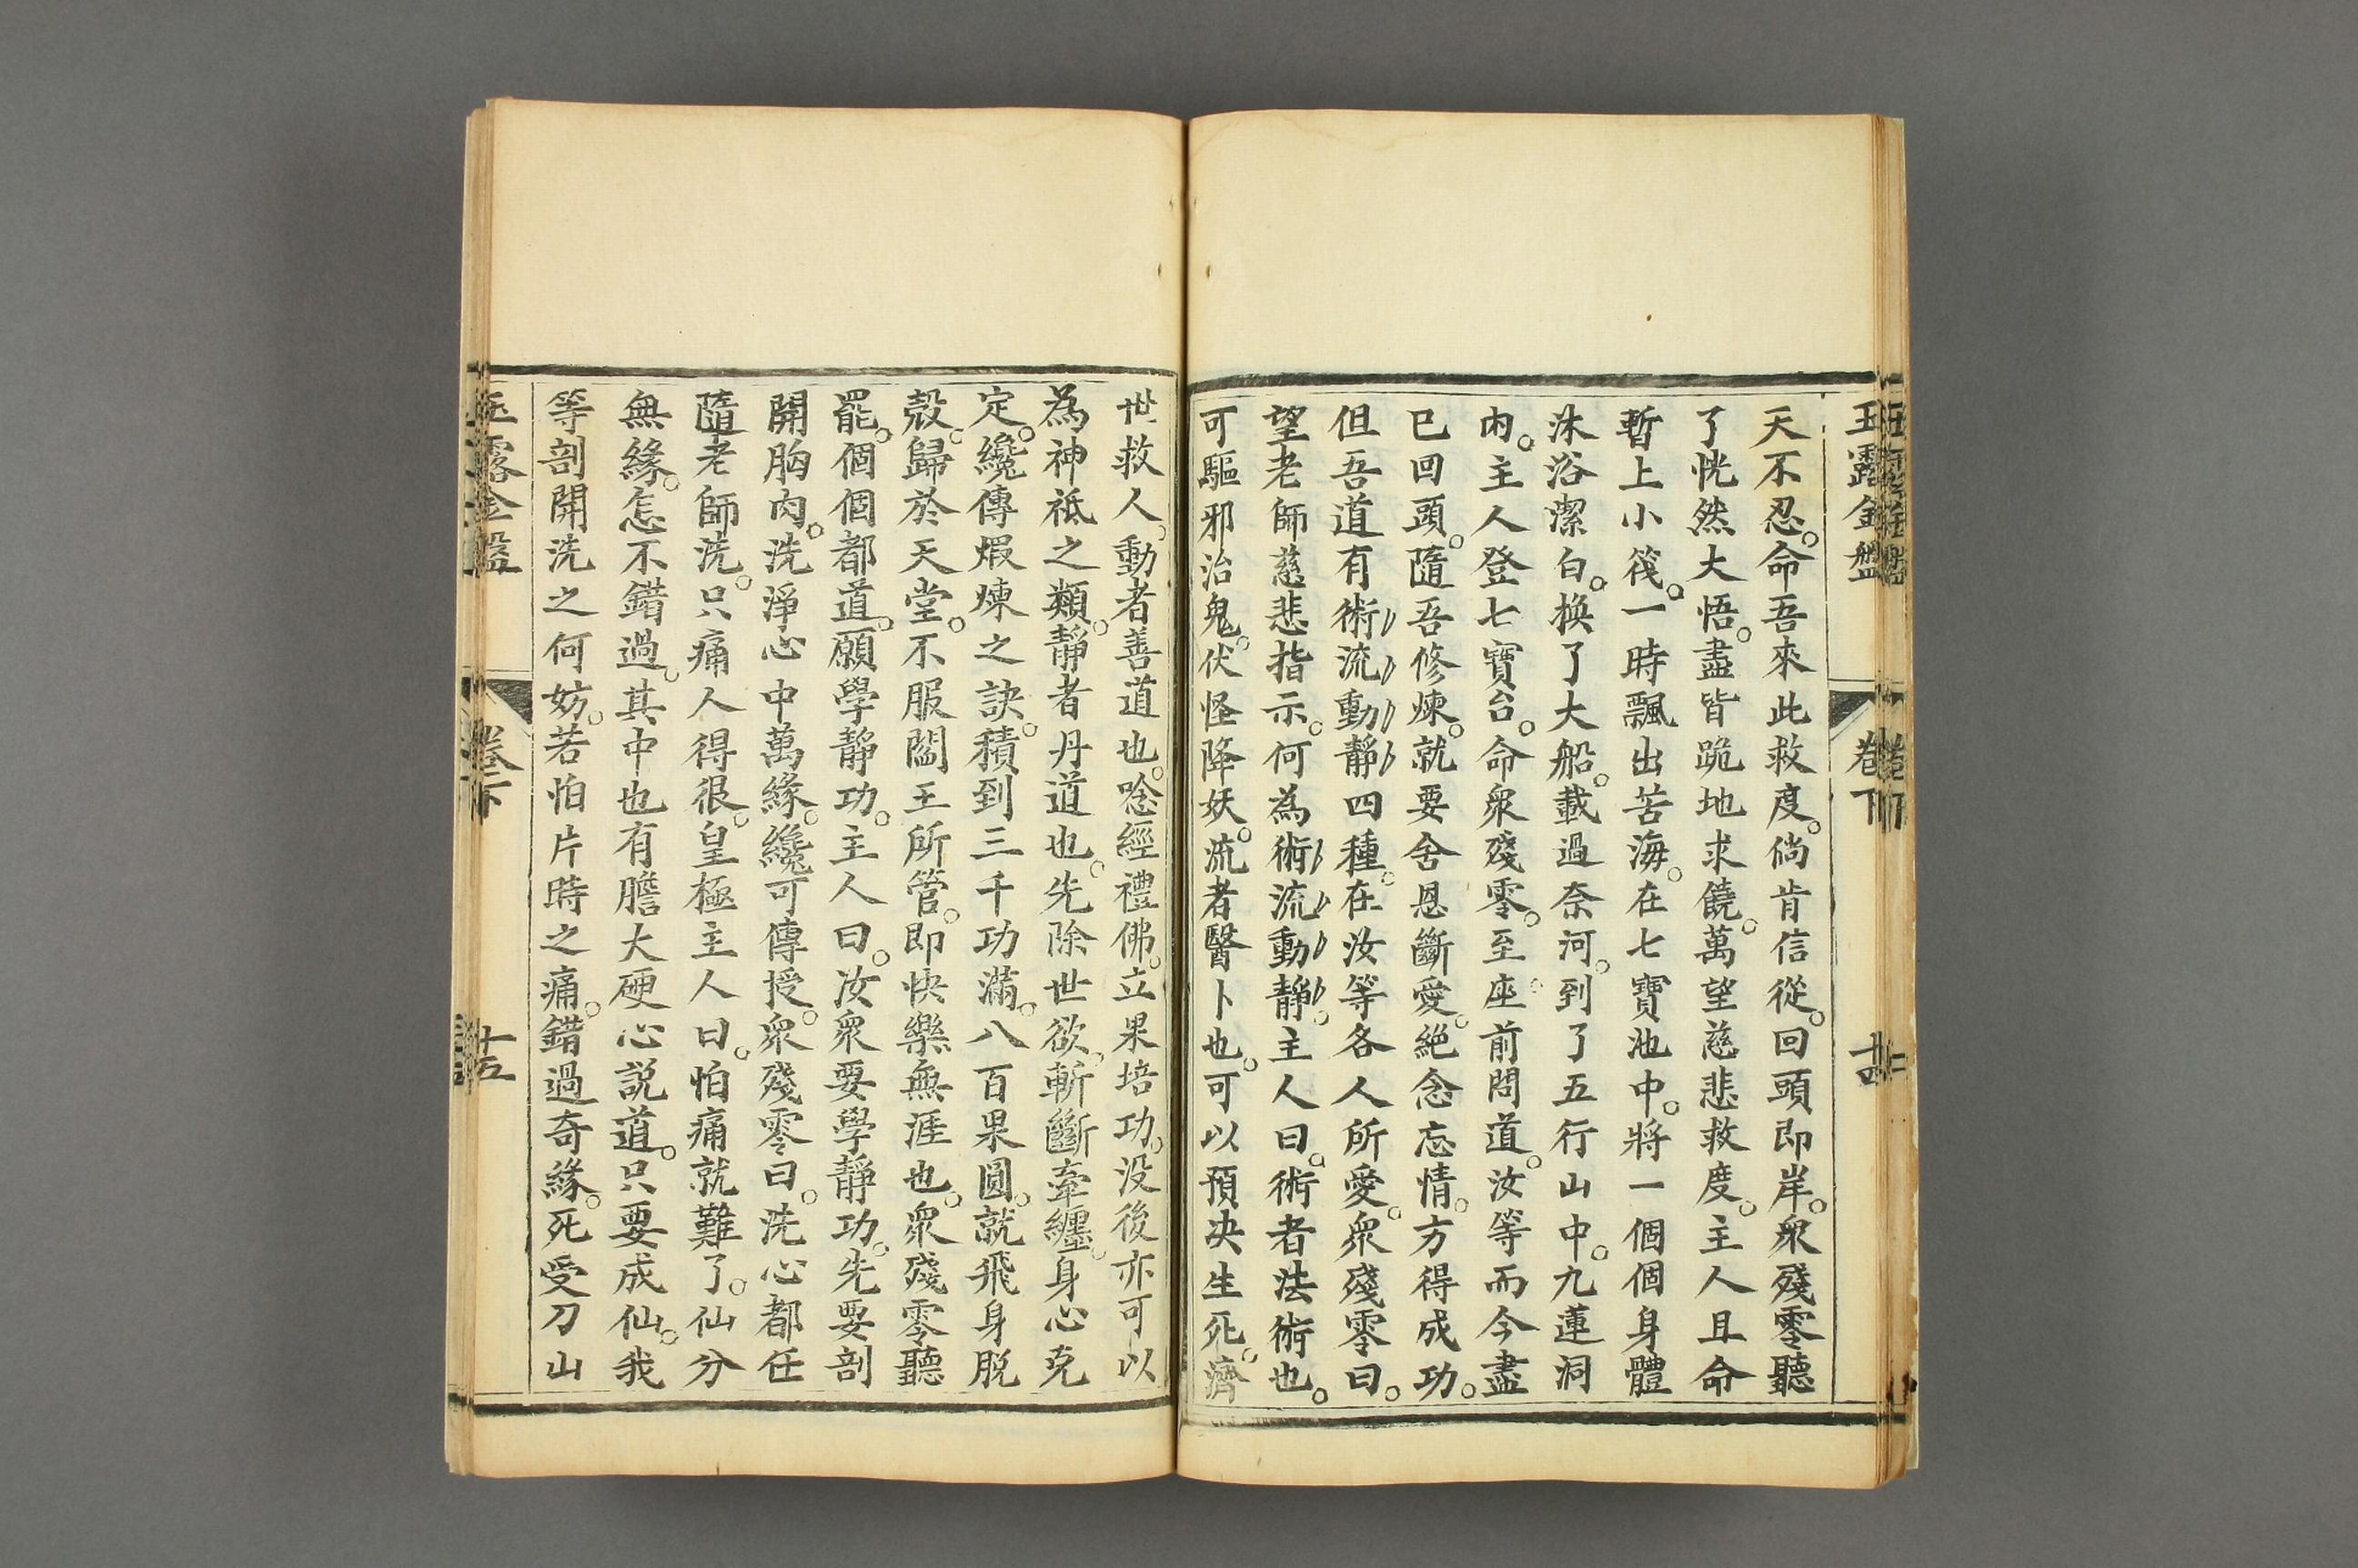 玉露金盤 卷下 十四
天不忍。命吾來此救度。倘肯信從。回頭即岸。衆殘零聽
了恍然大悟。盡皆跪地求饒。萬望慈悲救度。主人且命
暫上小筏。一時飄出苦海。在七寶池中。將一個個身體
沐浴潔白。換了大船。載過奈河。到了五行山中。九蓮洞
內。主人登七寶台。命衆殘零。至座前問道。汝等而今盡
已回頭。隨吾修煉。就要舍恩斷愛。絕念忘情。方得成功。
但吾道有術流動靜四種。在汝等各人所愛。衆殘零曰。
望老師慈悲指示。何為術流動靜。主人曰。術者法術也。
可驅邪治鬼。伏怪降妖。流者醫卜也。可以預决生死。濟
世救人。動者善道也。唸經禮佛。立果培功。没後亦可以
為神祗之類。靜者丹道也。先除世欲。斬斷牽纏。身心克
定。纔傳煆煉之訣。積到三千功滿。八百果圓。就飛身脱
殼。歸於天堂。不服閻王所管。即快樂無涯也。衆殘零聽
罷。個個都道。願學靜功。主人曰。汝衆要學靜功。先要剖
開胸內。洗淨心中萬緣。纔可傳授。衆殘零曰。洗心都任
隨老師洗。只痛人得很。皇極主人曰。怕痛就難了。仙分
無緣。怎不錯過。其中也有膽大硬心説道。只要成仙。我
等剖開洗之何妨。若怕片時之痛。錯過奇緣。死受刀山
玉露金盤 卷下 十五